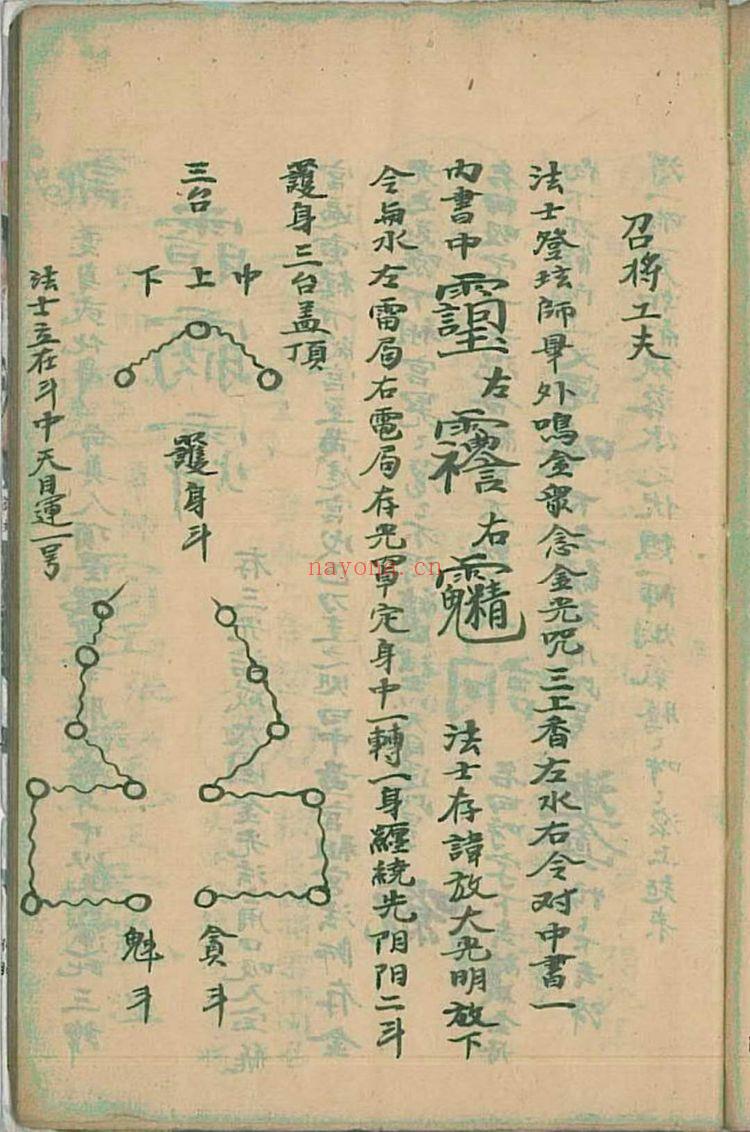 召将工夫
法士登玹師畢外鳴金衆念金光咒三上香左水右令对中書一
内書中 左 右 法士存諱放大光明放下
令与水左雷局右電局存光罩定身中一轉一身纏繞先阴阳二斗
護身三台盖頂
三台
中
上
下
護身斗
法士立在斗中天目運一号
貪斗
魁斗
nayong.cn